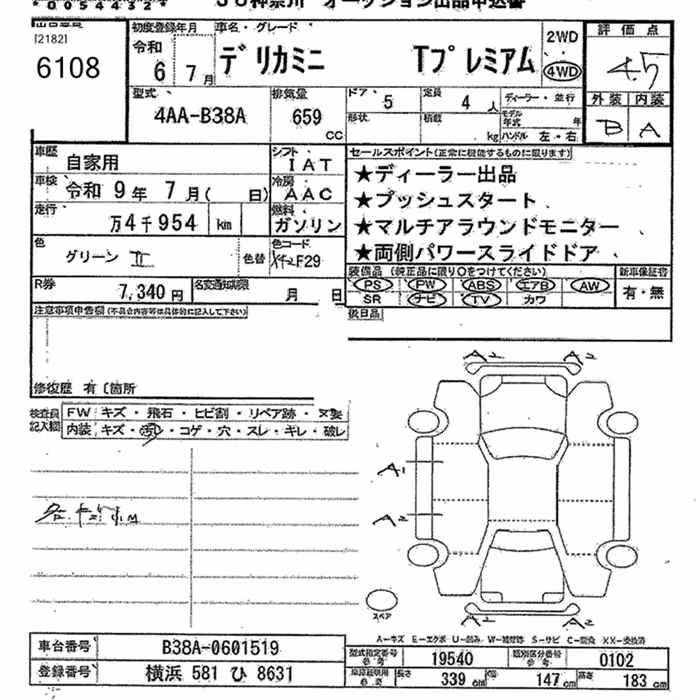 JU神奈川 オークション出品申込書
[2182]
6108
初度登録年月
令和
6 7月
車名・グレード
デリカミニ Tプレミアム
2WD
4WD
評価点
4.5
外装 内装
B A
型式
4AA-B38A
排気量
659 cc
ドア
5
形状
定員
4 人
積載
kg
ディーラー・並行
モデル年式 年
ハンドル 左・右
車歴
自家用
シフト
IAT
車検
令和 9年 7月( 日)
冷房
AAC
走行
万4千954 km
燃料
ガソリン
色
グリーンⅡ
色替
色コード
F29
セールスポイント(正常に機能するものに限ります)
★ディーラー出品
★プッシュスタート
★マルチアラウンドモニター
★両側パワースライドドア
装備品 (純正品に限り○をつけてください)
PS PW ABS エアB AW
SR ナビ TV カワ
新車保証書
有・無
R券
7,340 円
名変通知期限
月 日
後日品
注意事項申告欄(不具合内容等は具体的に記入して下さい)
修復歴 有〔箇所
検査員記入欄
FW キズ・飛石・ヒビ割・リペア跡・要
内装 キズ・汚レ・コゲ・穴・スレ・キレ・破レ
A2 A2
A1
A2
A2 A2
スペア
A-キズ E-エクボ U-凹み W-補修跡 S-サビ C-腐食 XX-交換済
車台番号
B38A-0601519
登録番号
横浜 581 ひ 8631
型式指定番号
19540
類別区分番号
0102
長さ
339 cm
幅
147 cm
高さ
183 cm